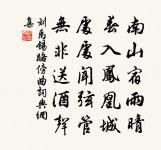 南山宿雨晴
春入鳳凰城
處處聞弦管
無非送酒聲
劉禹錫路傍曲詞典網
集